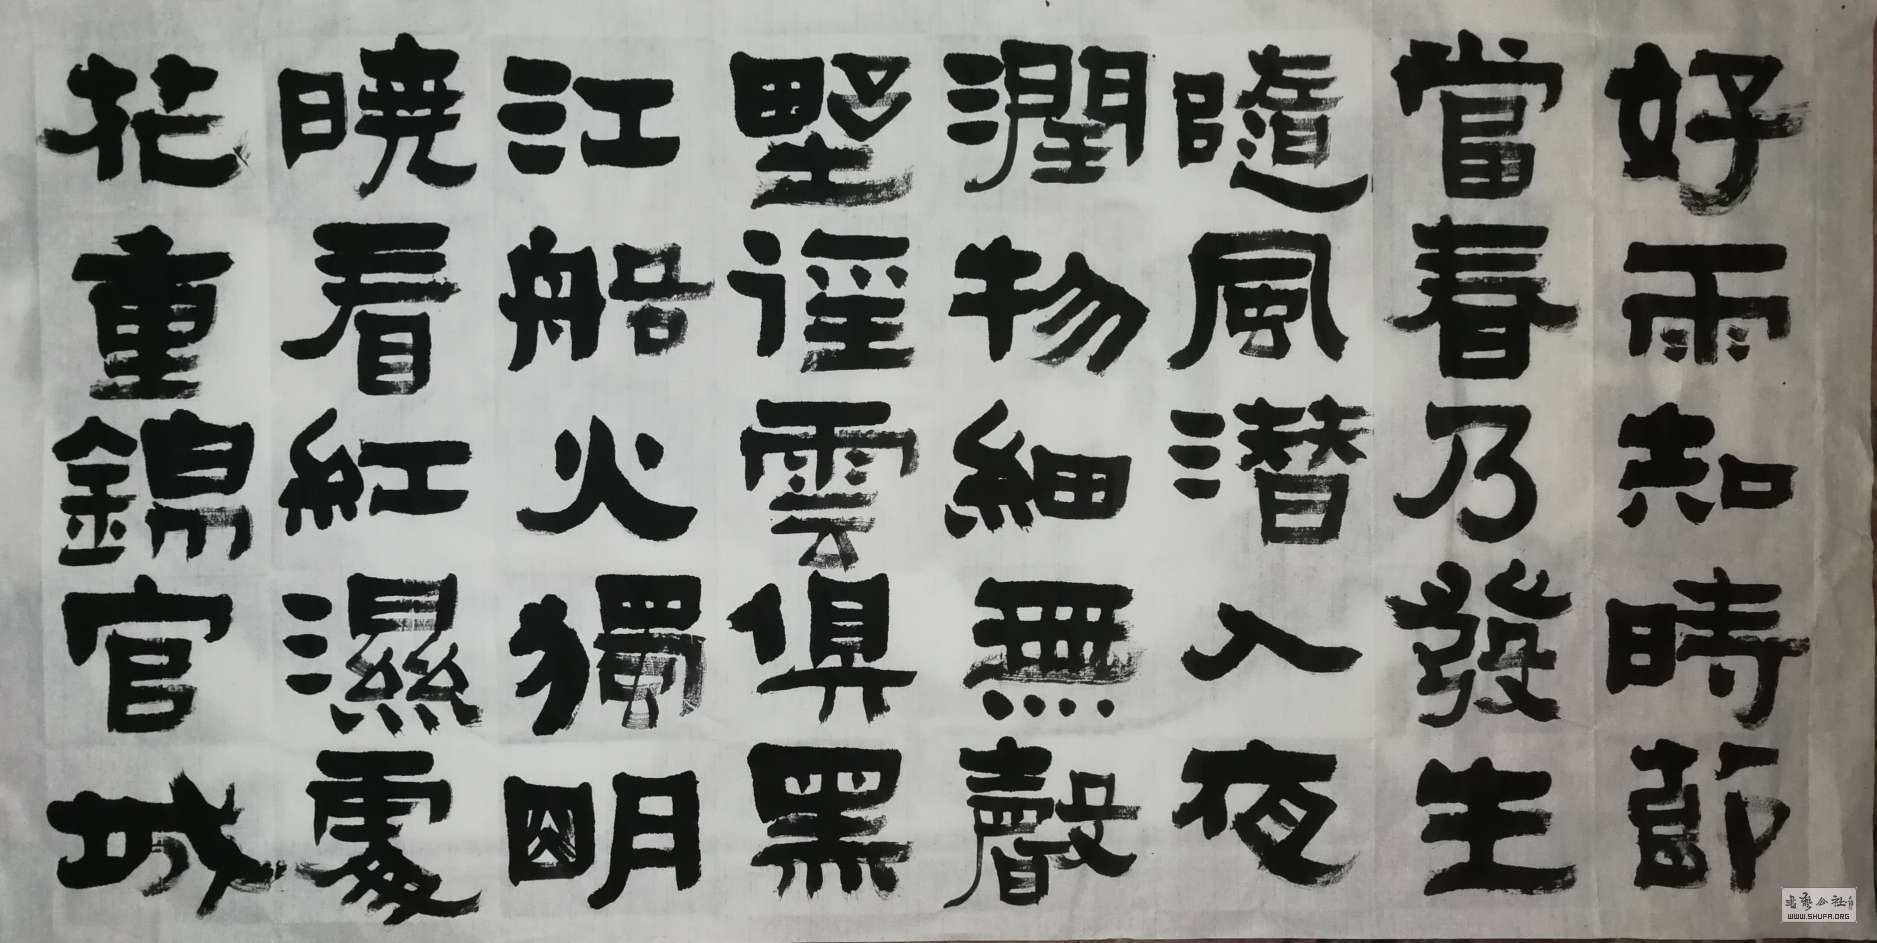 好雨知時節
當春乃發生
隨風潛入夜
潤物細無聲
野徑雲俱黑
江船火獨明
曉看紅濕處
花重錦官城
书艺公社
WWW.SHUFA.ORG